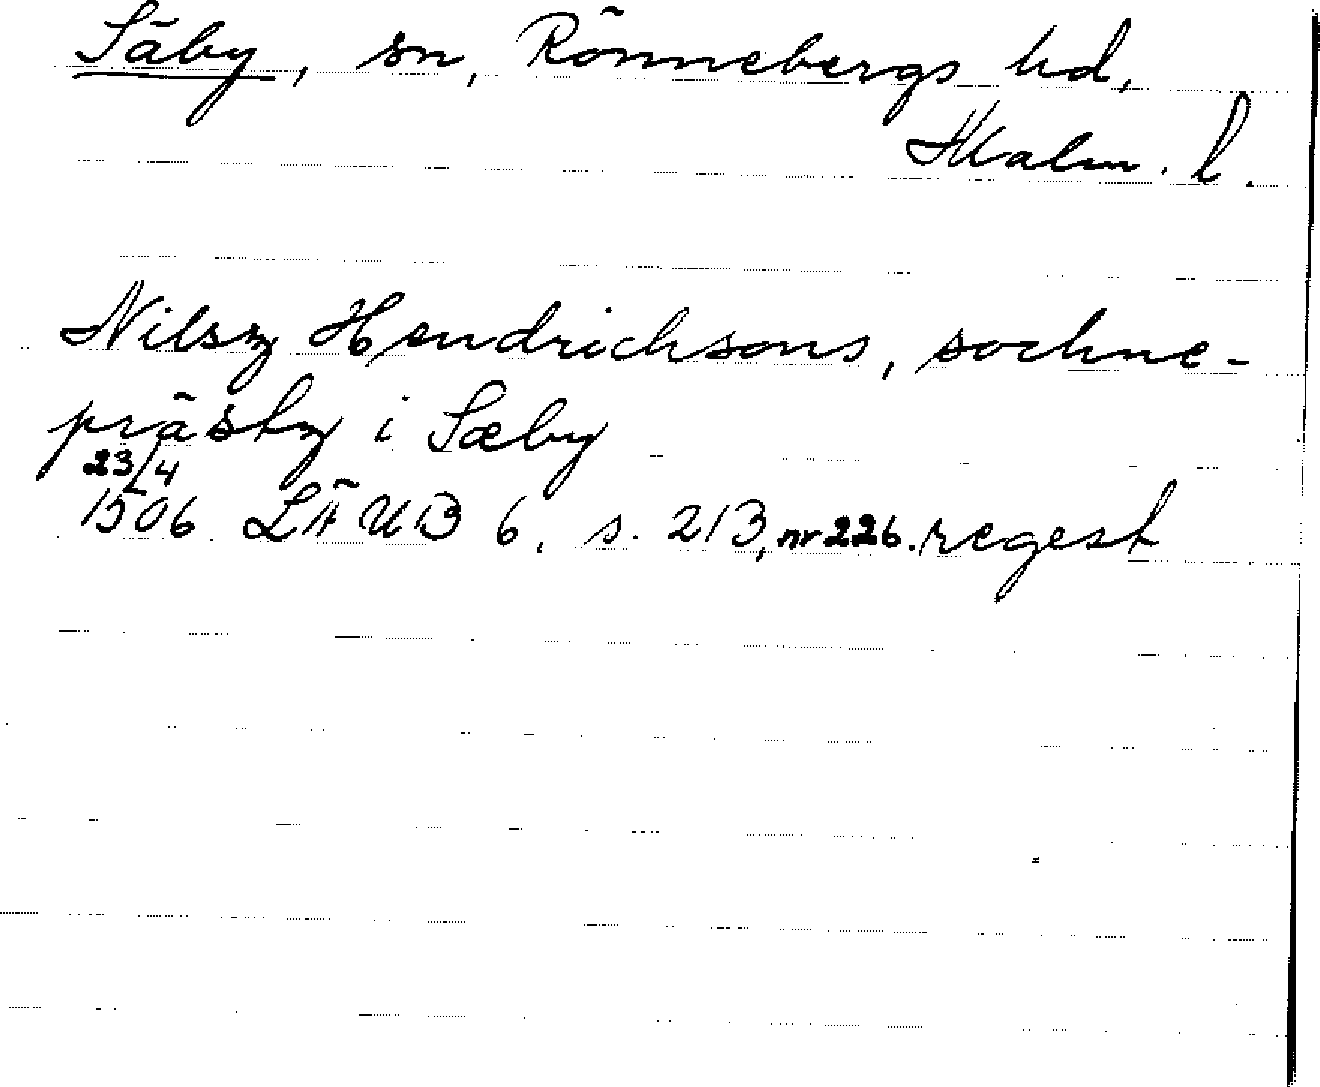 Säby, sn, Rönnebergs hd,
Malm. l.
Nilsz Hendrichsons, sochne-
prästz i Sæby
23/4
1506 LÄUB 6, s. 213, nr 226. regest